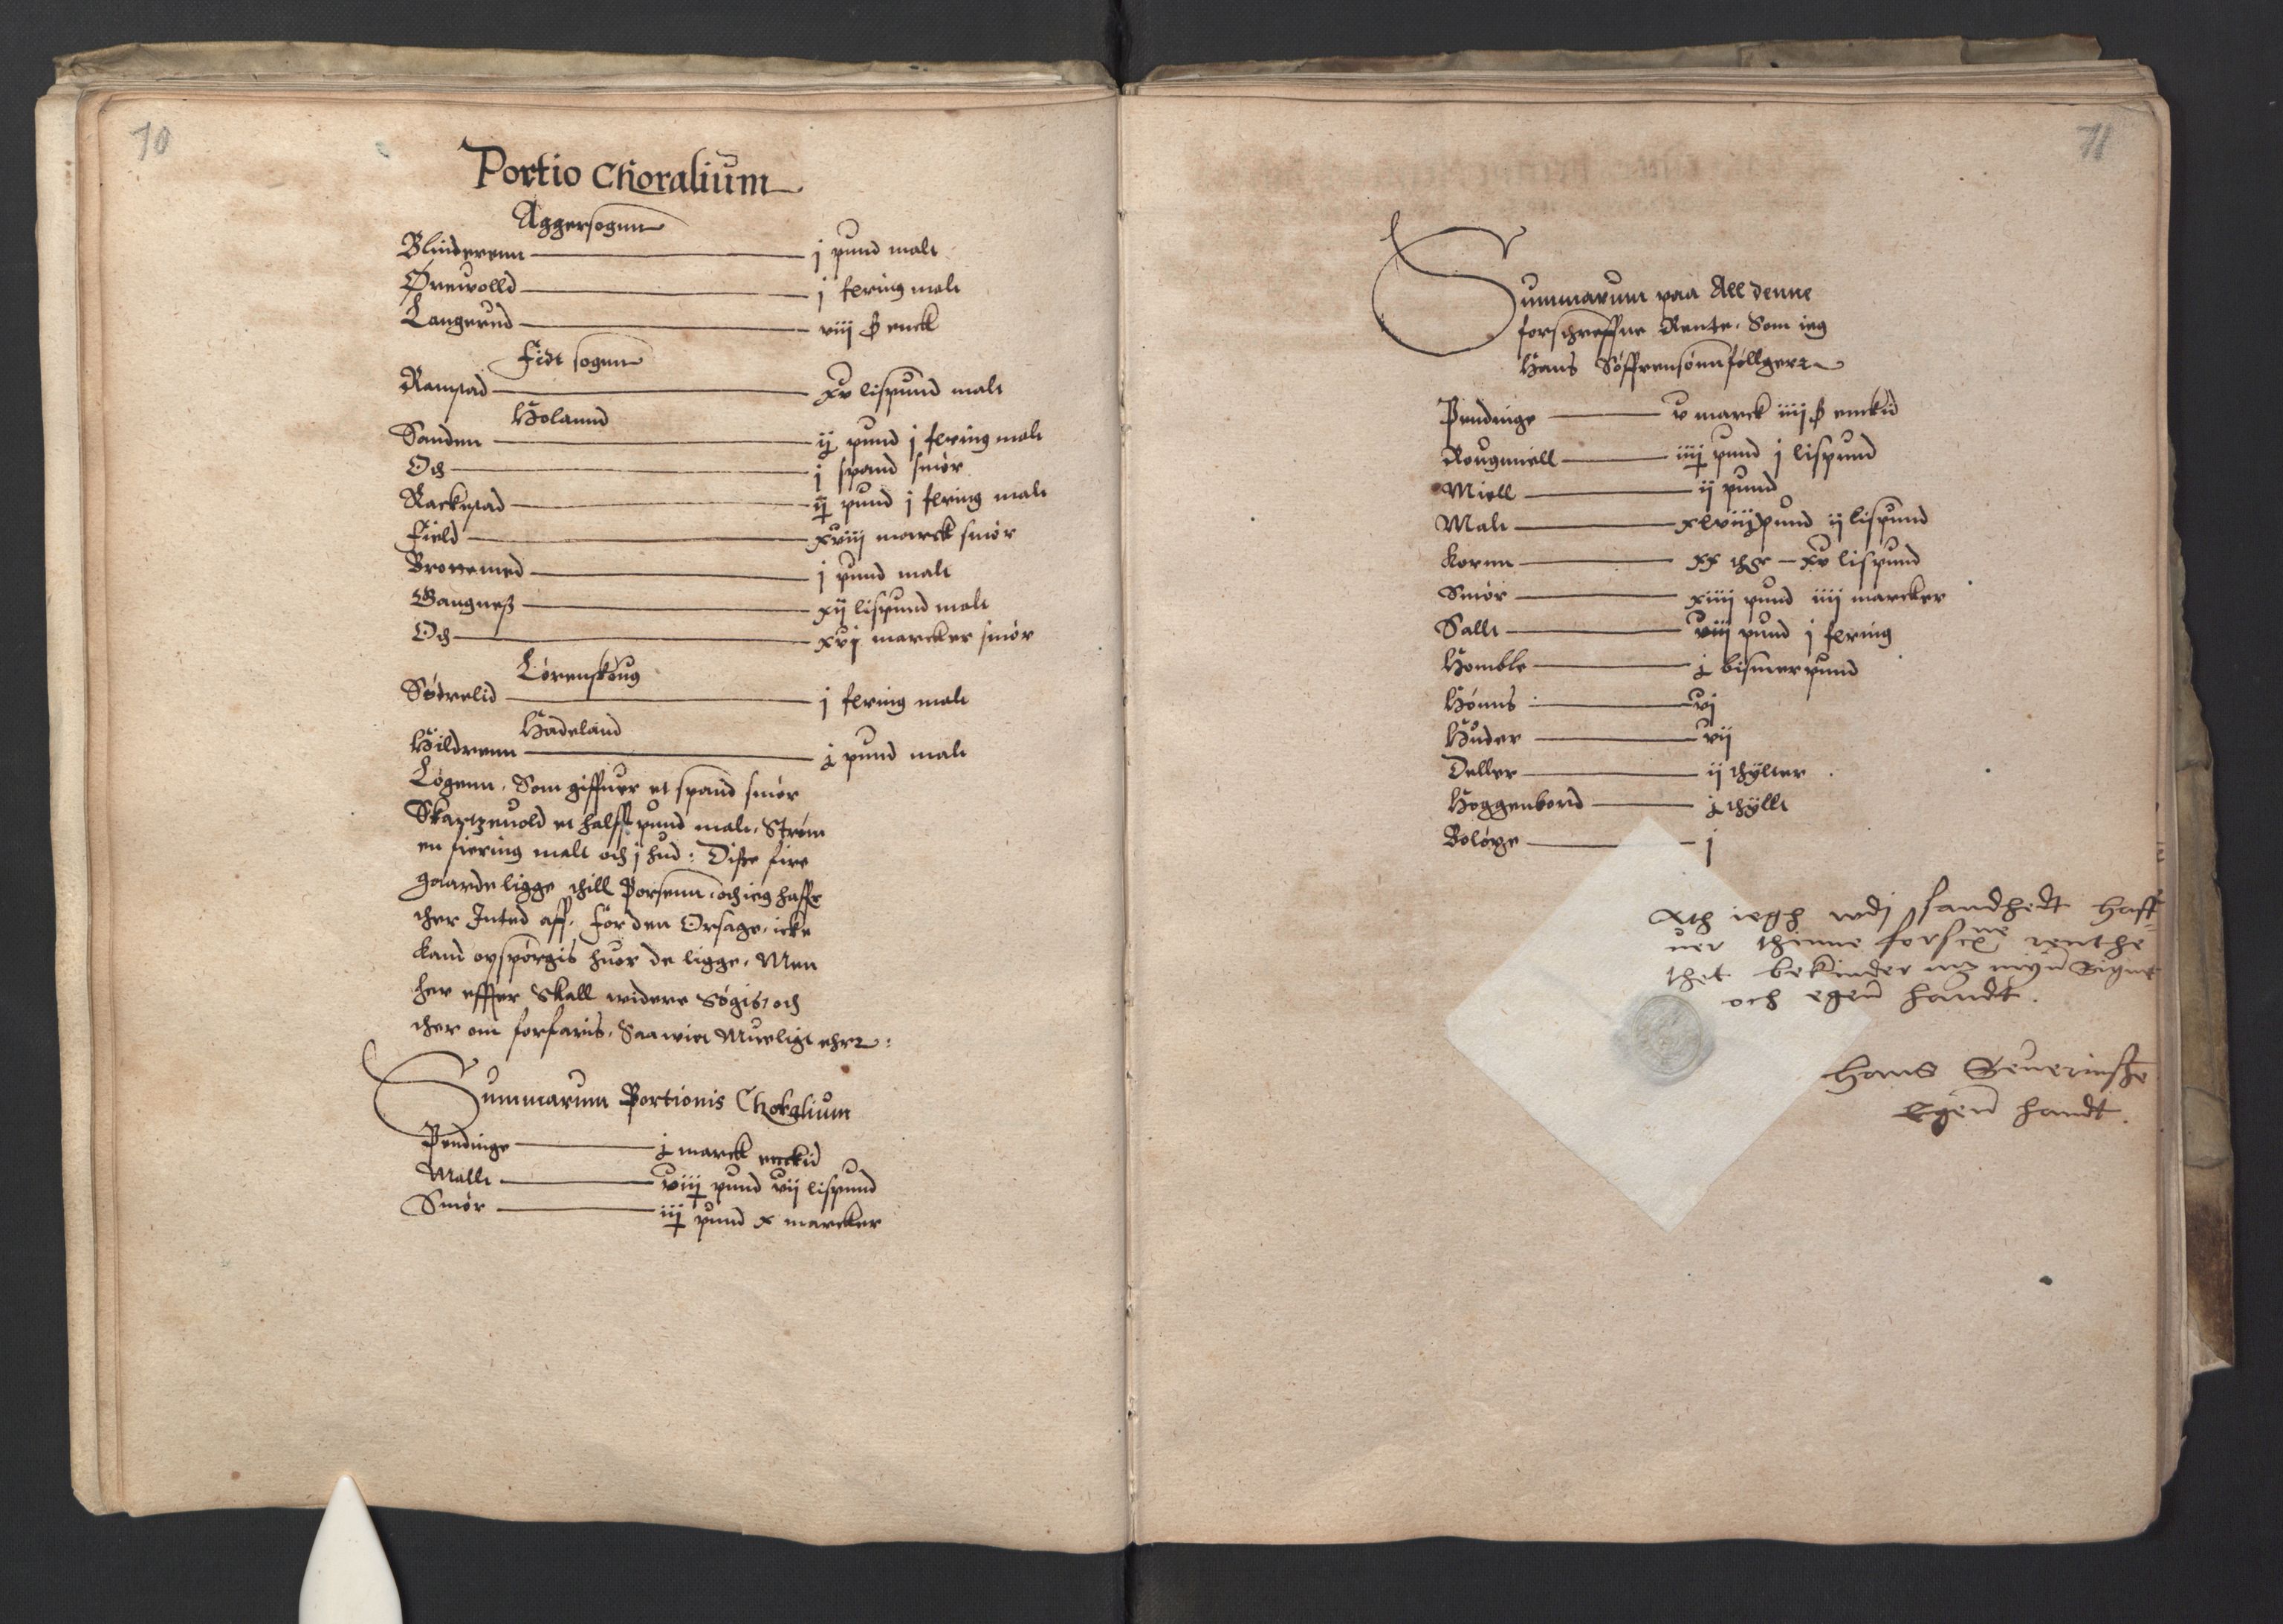 70
Portio Choralium
Aggersognn
Blinderenn j pund malt
Øreuolld j fering malt
Langerud viij ß enck
Fidt sognn
Ramstad xv lispund malt
Holannd
Sanden ij pund j fering malt
Och j spand smör
Rackestad ij pund j fering malt
Field xviij marck smör
Brottemed j pund malt
Gangneß xij lispund malt
Och xvj marcker smör
Lörenskoug
Södrelid j fering malt
Hadeland
Hildrenn j pund malt
Løgenn, Som giffuer et spand smör
et halfft pund malt, Ström
en fiering malt och j hud: Diße fire
gaarde ligge thill Porsenn, och ieg haffr
ther Inted aff, For den Orsage, icke
kand opspörgis huor de ligge, Men
her effter Skall widere Søgis, och
ther om forfaris, Saa wiet Mueligt ehrr:
Summarum Portionis Choralium
Pendinge j marck enckid
Mallt viij pund vij lispund
Smör iij pund x marcker
71
Summarum paa All denne
forschreffne Rente, Som ieg
Hans Söffrensönn föllgerr
Pendinge v marck iiij ß enckid
Rougmiell iiij pund j lispund
Miell ij pund
Malt xlviij pund ij lispund
Kornn xx xv lispund
Smör xiiij pund iiij marcker
Sallt viij pund j fering
Homble j bismerpund
Hönns vj
Huder vij
Deller ij thylter
Hoggenbord j thyllt
Boløxe j
Ath iegh wdj sandhedt haff-
uer thenne forscr ne renthe
thet bekinder mz mÿn Signet
och egen handt.
Hans Seuerinßø
Egen handt.